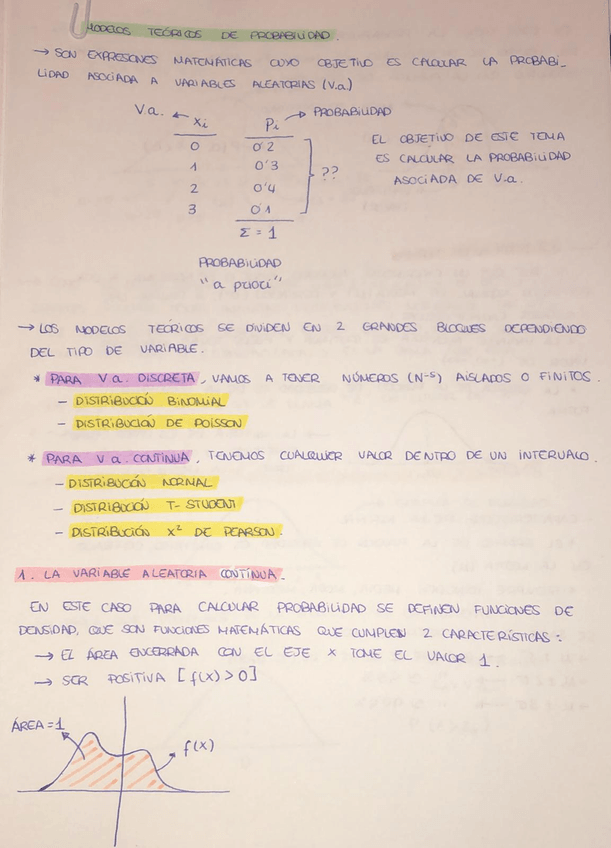 MODELOS TEÓRICOS DE PROBABILIDAD.
→ SON EXPRESIONES MATEMÁTICAS CUYO OBJETIVO ES CALCULAR LA PROBABI-
LIDAD ASOCIADA A VARIABLES ALEATORIAS (V.a)
V.a. ← xi Pi → PROBABILIDAD
0 0'2
1 0'3
2 0'4
3 0'1
Σ = 1
??
EL OBJETIVO DE ESTE TEMA
ES CALCULAR LA PROBABILIDAD
ASOCIADA DE V.a.
PROBABILIDAD
"a priori"
→ LOS MODELOS TEÓRICOS SE DIVIDEN EN 2 GRANDES BLOQUES DEPENDIENDO
DEL TIPO DE VARIABLE.
* PARA V.a. DISCRETA, VAMOS A TENER NÚMEROS (Nᵒˢ) AISLADOS O FINITOS.
- DISTRIBUCIÓN BINOMIAL
- DISTRIBUCIÓN DE POISSON
* PARA V.a. CONTINUA, TENEMOS CUALQUIER VALOR DENTRO DE UN INTERVALO.
- DISTRIBUCIÓN NORMAL
- DISTRIBUCIÓN T-STUDENT
- DISTRIBUCIÓN X² DE PEARSON.
1. LA VARIABLE ALEATORIA CONTÍNUA.
EN ESTE CASO PARA CALCULAR PROBABILIDAD SE DEFINEN FUNCIONES DE
DENSIDAD, QUE SON FUNCIONES MATEMÁTICAS QUE CUMPLEN 2 CARACTERÍSTICAS:
→ EL ÁREA ENCERRADA CON EL EJE X TOME EL VALOR 1.
→ SER POSITIVA [f(x)>0]
ÁREA = 1
f(x)